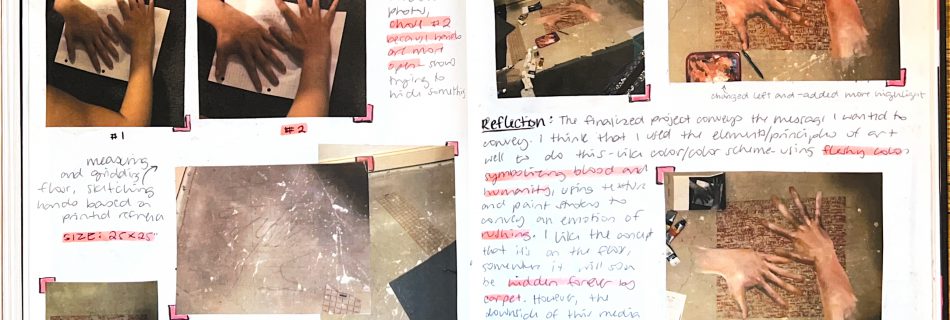 photos,
chose #2
because hands
are more
open - shows
trying to
hide something
#1
#2
measuring
and gridding
floor, sketching
hands based on
printed reference
SIZE: 25x25"
changed left and added more highlight
Reflection: The finalized project conveys the message I wanted to
convey. I think that I used the elements/principles of art
well to do this - like color/color scheme - using fleshy colors
symbolizing blood and
humanity, using texture
and paint strokes to
convey an emotion of
rushing. I like the concept
that it's on the floor,
somewhere it will soon
be hidden forever by
carpet. However, the
downside of this media